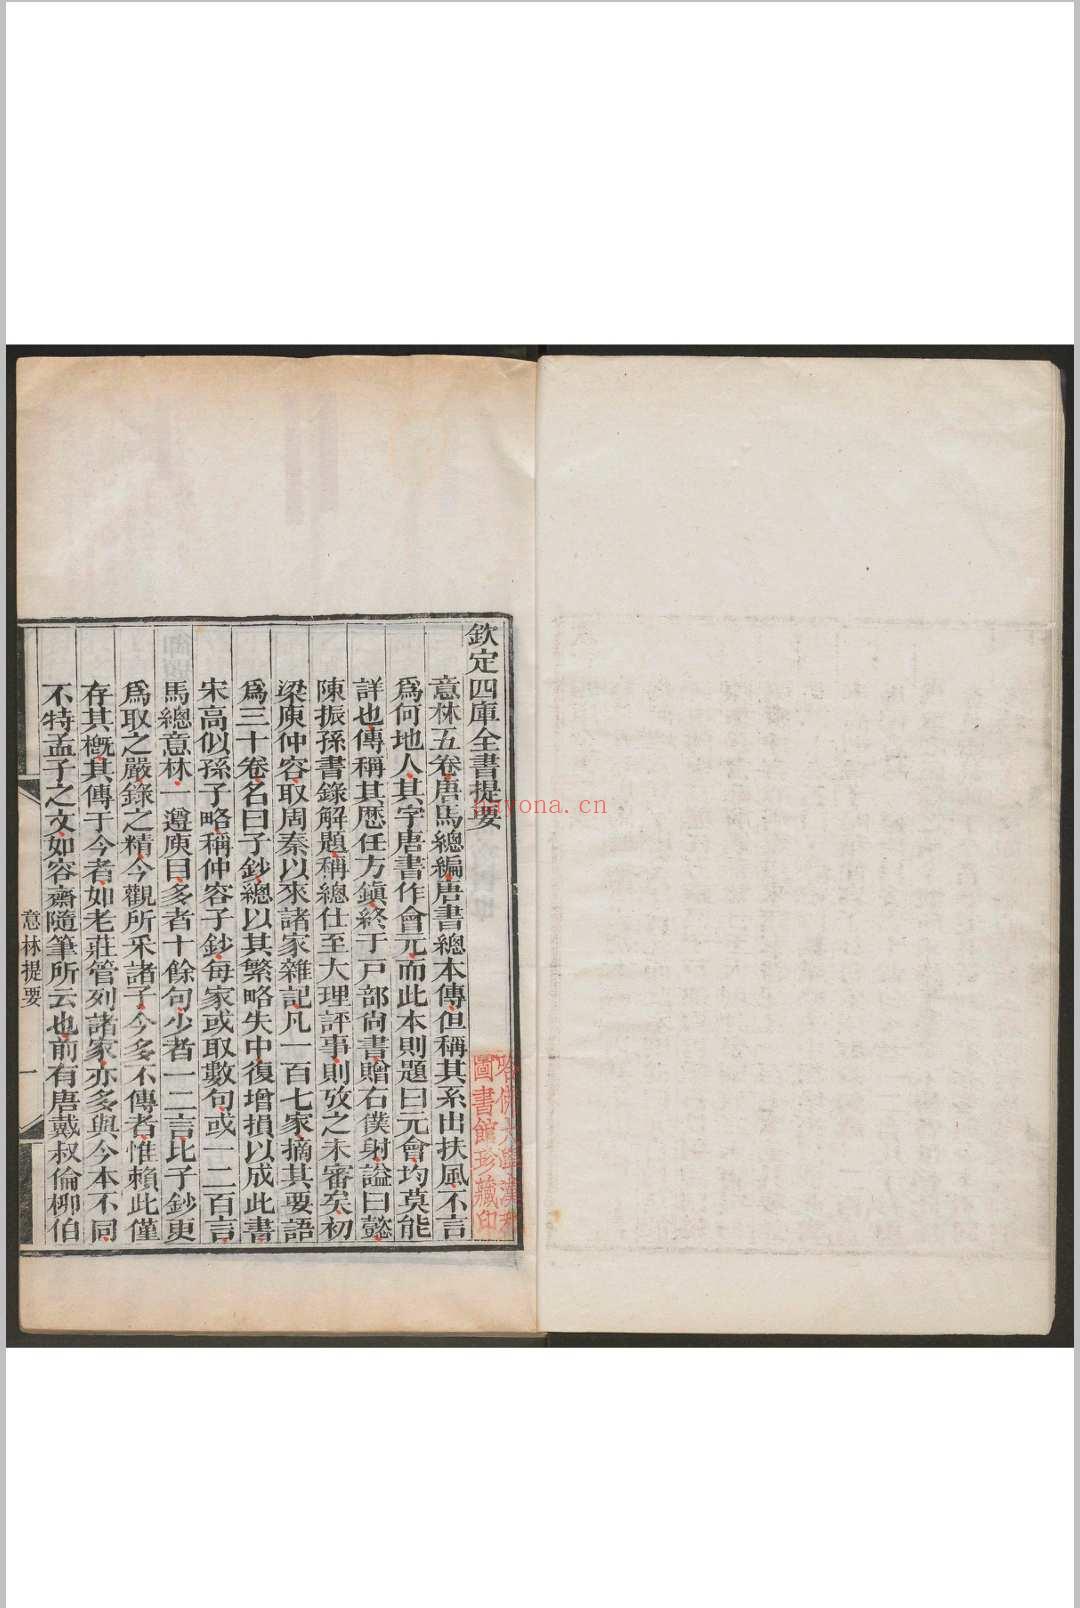 欽定四庫全書提要
意林五卷唐馬總編唐書總本傳但稱其系出扶風不言
爲何地人其字唐書作會元而此本則題曰元會均莫能
詳也傳稱其歷任方鎮終于戸部尙書贈右僕射諡曰懿
陳振孫書錄解題稱總仕至大理評事則攷之未審矣初
梁庾仲容取周秦以來諸家雜記凡一百七家摘其要語
爲三十卷名曰子鈔總以其繁略失中復增損以成此書
宋高似孫子略稱仲容子鈔每家或取數句或一二百言
馬總意林一遵庾目多者十餘句少者一二言比子鈔更
爲取之嚴錄之精今觀所采諸子今多不傳者惟賴此僅
存其槪其傳于今者如老莊管列諸家亦多與今本不同
不特孟子之文如容齋隨筆所云也前有唐戴叔倫柳伯
意林提要
一
哈佛大學漢和
圖書館珍藏印
nayona.cn